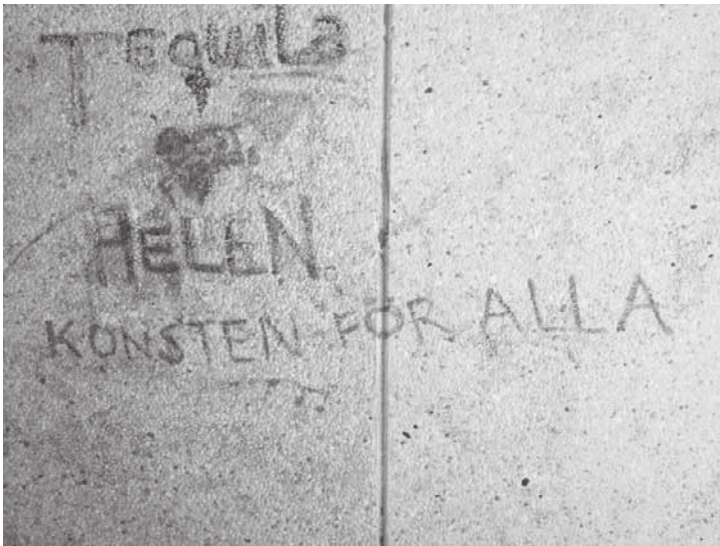 TEQUILa
HELEN
KONSTEN FÖR ALLA